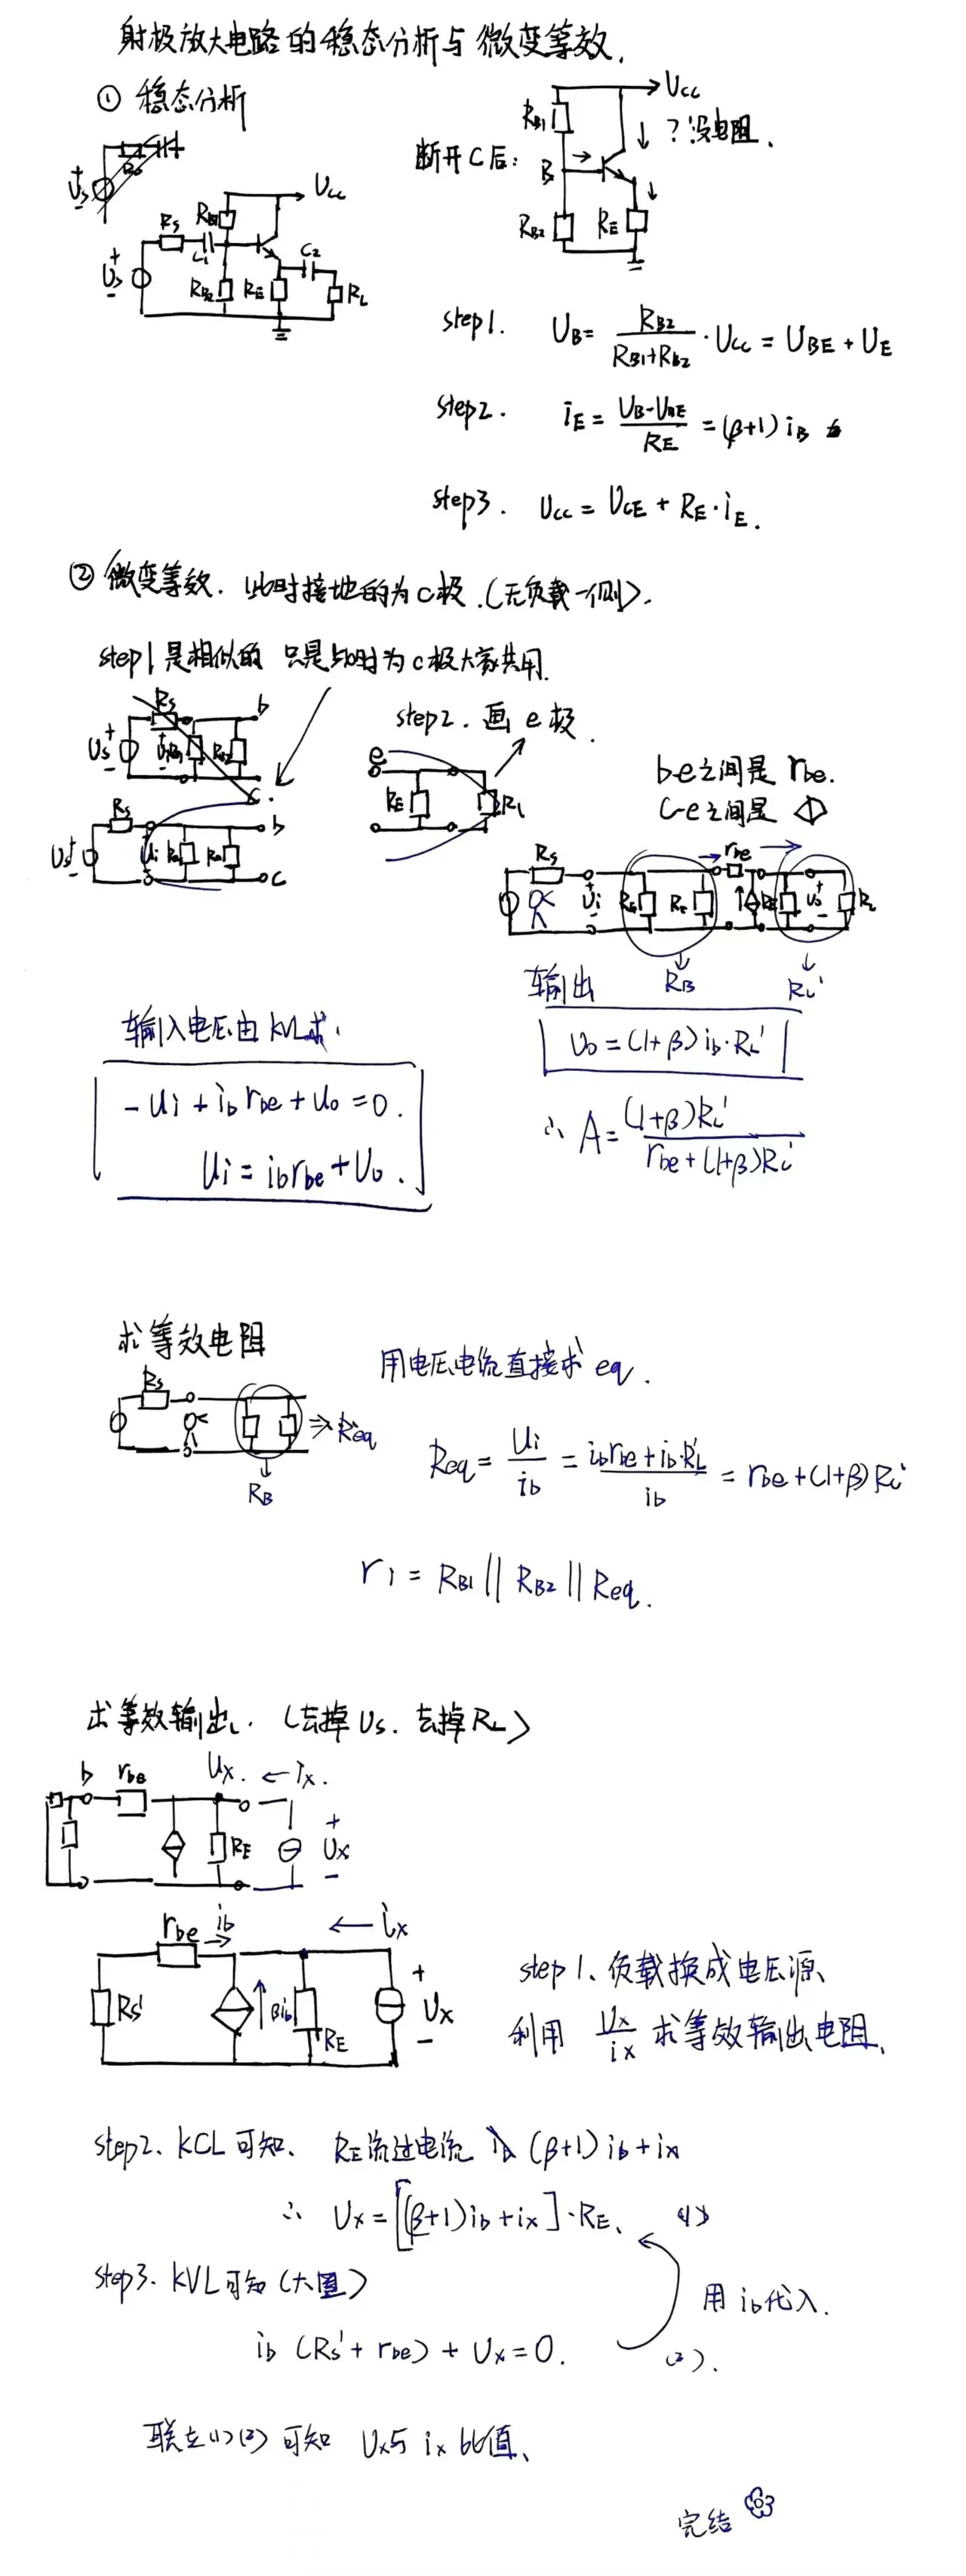 射极放大电路的稳态分析与微变等效.
① 稳态分析
断开C后:
Ucc
RB1
B
RB2
RE
? 没电阻.
Us
Rs
C1
RB1
Ucc
RB2
RE
C2
RL
step1. UB = RB2/(RB1+RB2) · Ucc = UBE + UE
step2. iE = (UB-UBE)/RE = (β+1) iB
step3. Ucc = UCE + RE·iE.
② 微变等效. 此时接地的为c极.(无负载一侧).
step1是相似的 只是此时为c极大家共用.
Rs
b
Us
c.
step2. 画e极.
e
RE
RL
be之间是 rbe.
c-e之间是
Rs
Us
Ui
b
c
Rs
Ui
rbe
RE
Uo
RL
RB
RL'
输出
Uo = (1+β) ib·RL'
输入电压由KVL求.
-Ui + ib rbe + Uo = 0.
Ui = ib rbe + Uo.
∴ A = (1+β)RL'/(rbe+(1+β)RL')
求等效电阻
Rs
Req
RB
用电压电流直接求 eq.
Req = Ui/ib = (ib rbe + ib·RL')/ib = rbe+(1+β)RL'
ri = RB1 || RB2 || Req.
求等效输出. (去掉Us. 去掉RL)
b rbe Ux. ← ix.
RE
+
Ux
-
rbe ib ← ix
Rs'
βib
RE
+
Ux
-
step1、负载换成电压源、
利用 Ux/ix 求等效输出电阻、
step2、KCL可知、 RE流过电流 (β+1) ib + ix
∴ Ux = [(β+1)ib + ix]·RE、 (1)
step3、KVL可知(大圈)
用ib代入.
ib (Rs' + rbe) + Ux = 0. (2).
联立(1)(2) 可知 Ux与 ix 比值、
完结